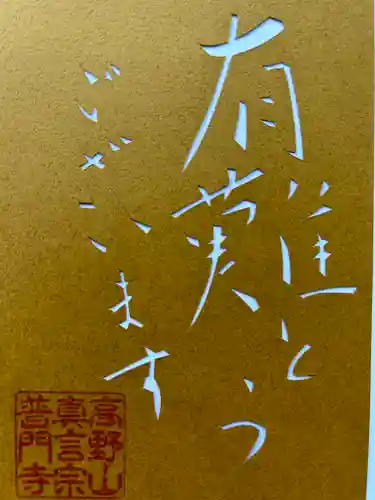 有難う
ございます
高野山
真言宗
普門寺